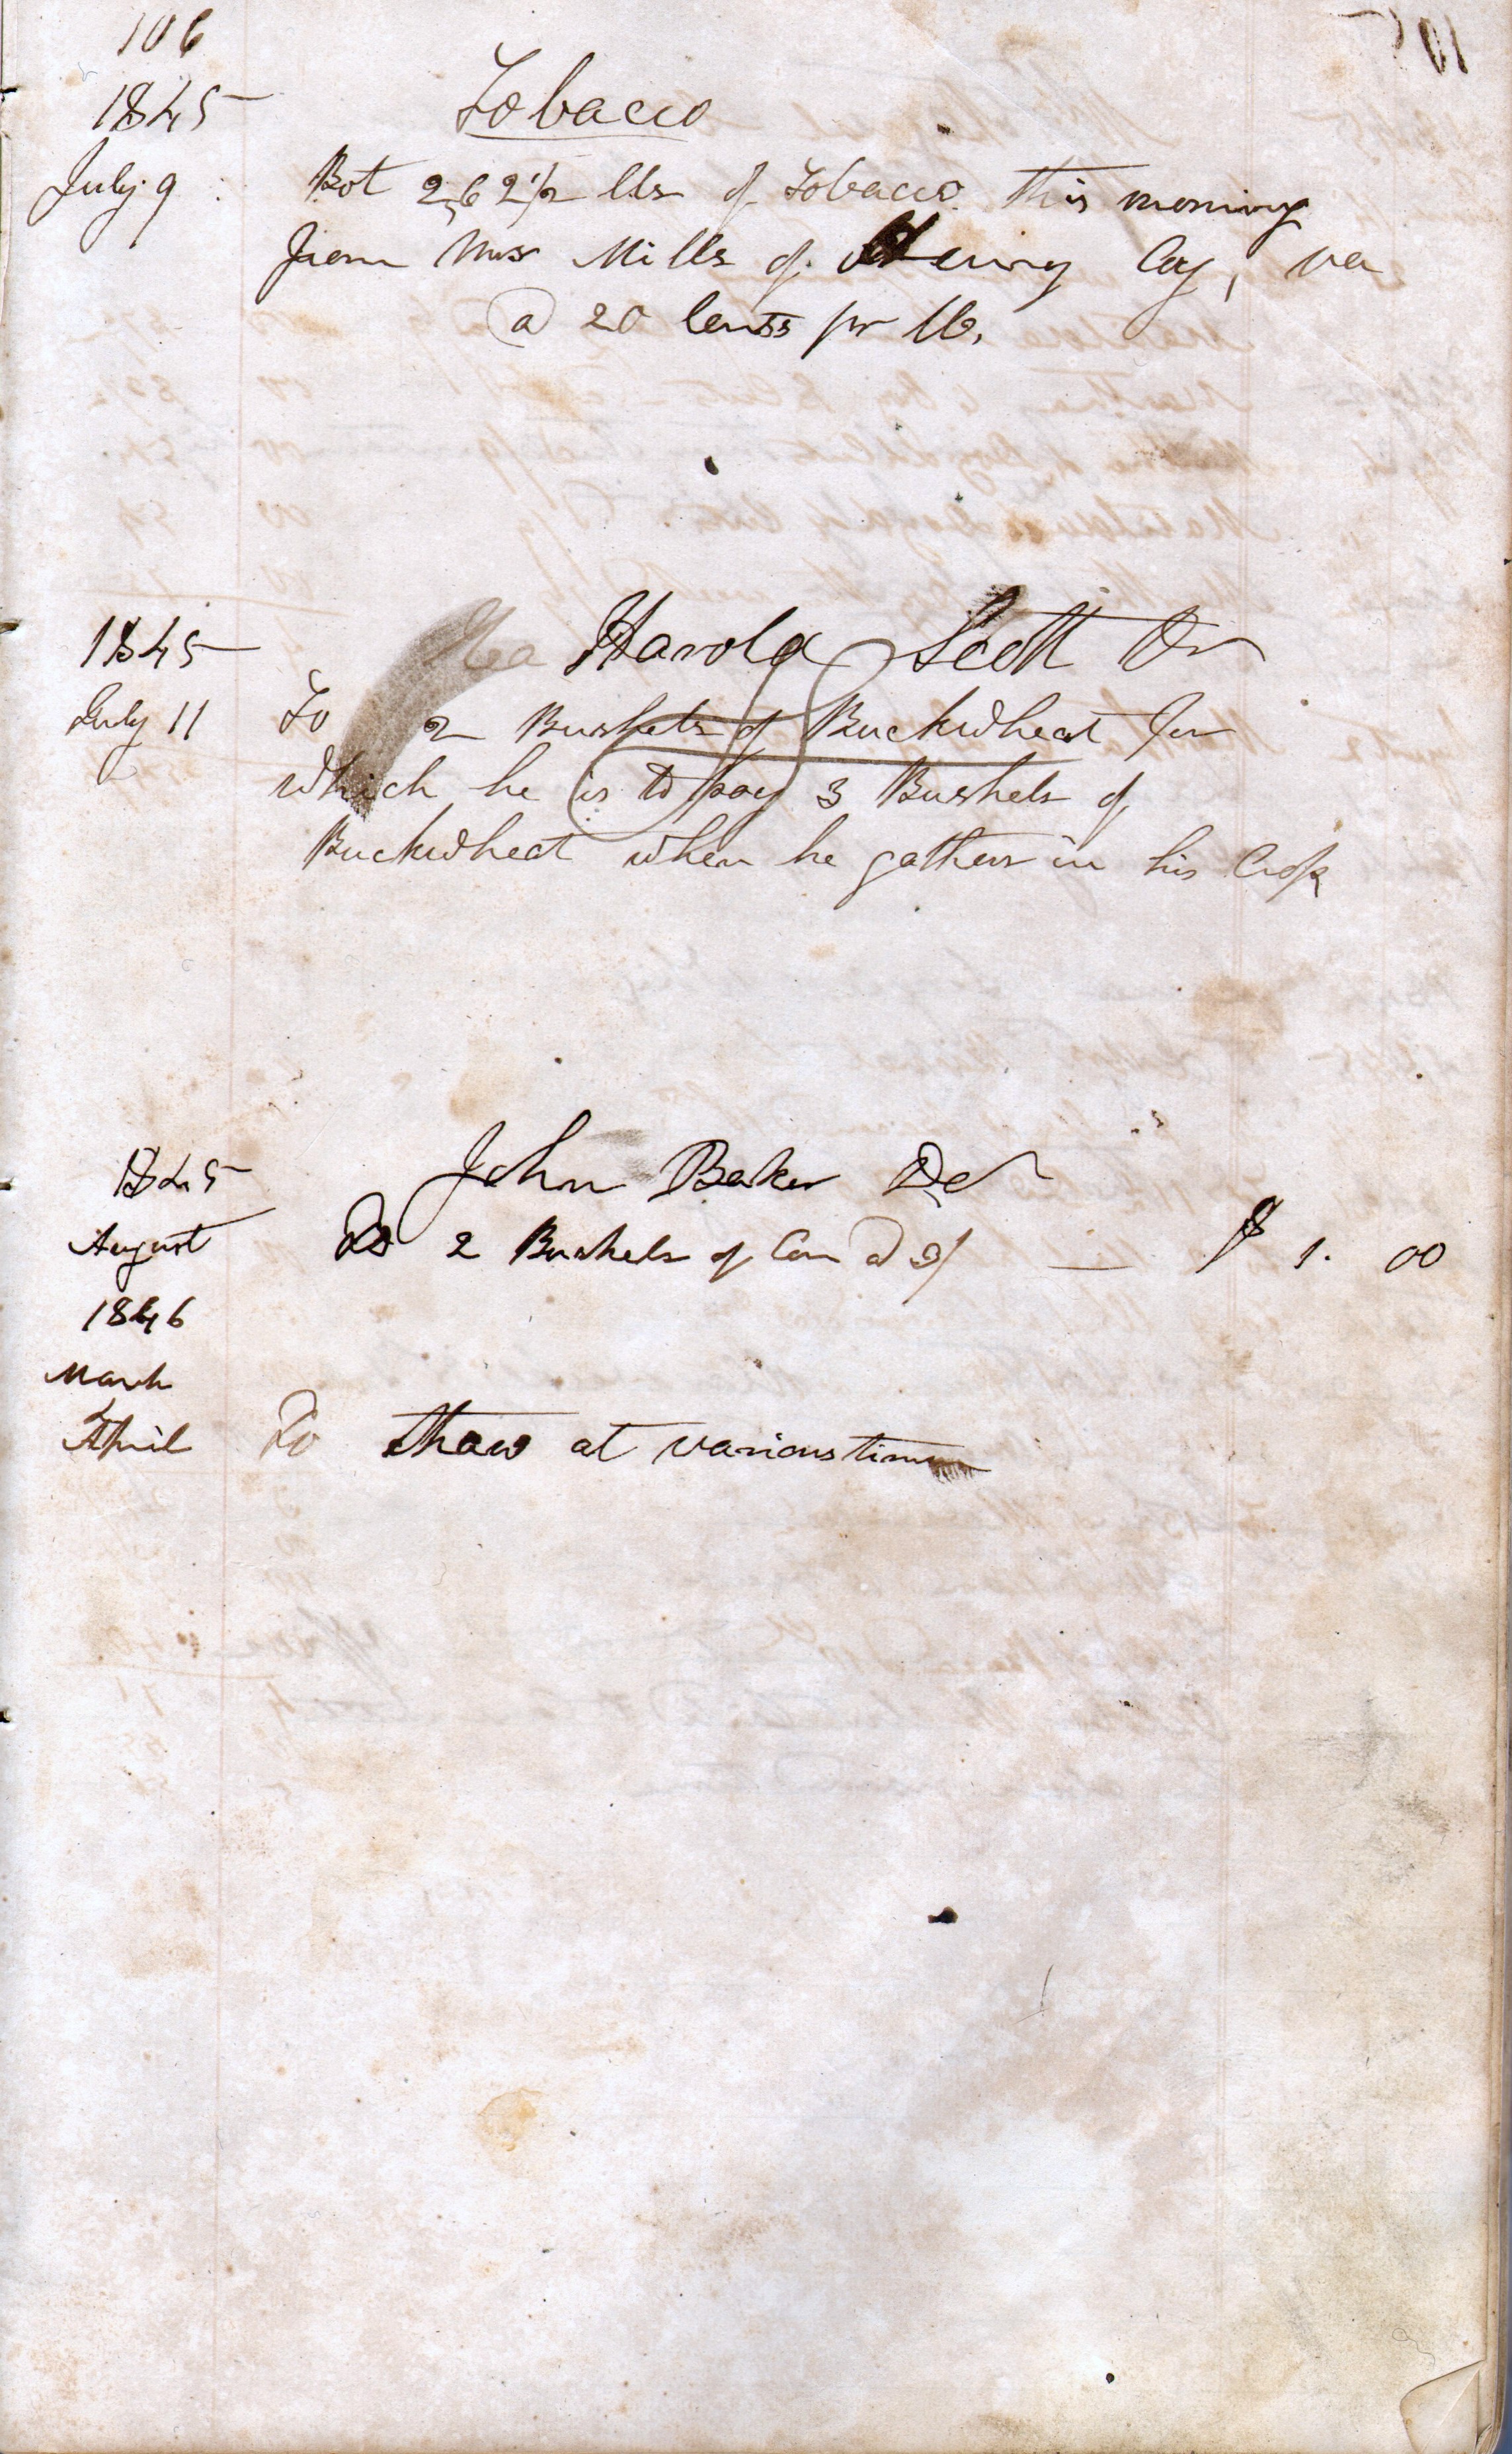 106
1845
Tobacco
July 9 Bot 262 1/2 lbs of Tobacco this morning
from Mrs Mills of Henry Coy, va
@ 20 Cents pr lb,
1845 Harold Scott Dr
July 11 To 2 Bushels of Buckwheat for
which he is to pay 3 Bushels of
Buckwheat when he gathers in his Crop
1845 John Baker Dr
August To 2 Bushels of Corn @ 3/ — $ 1. 00
1846
March
April To Straw at various times